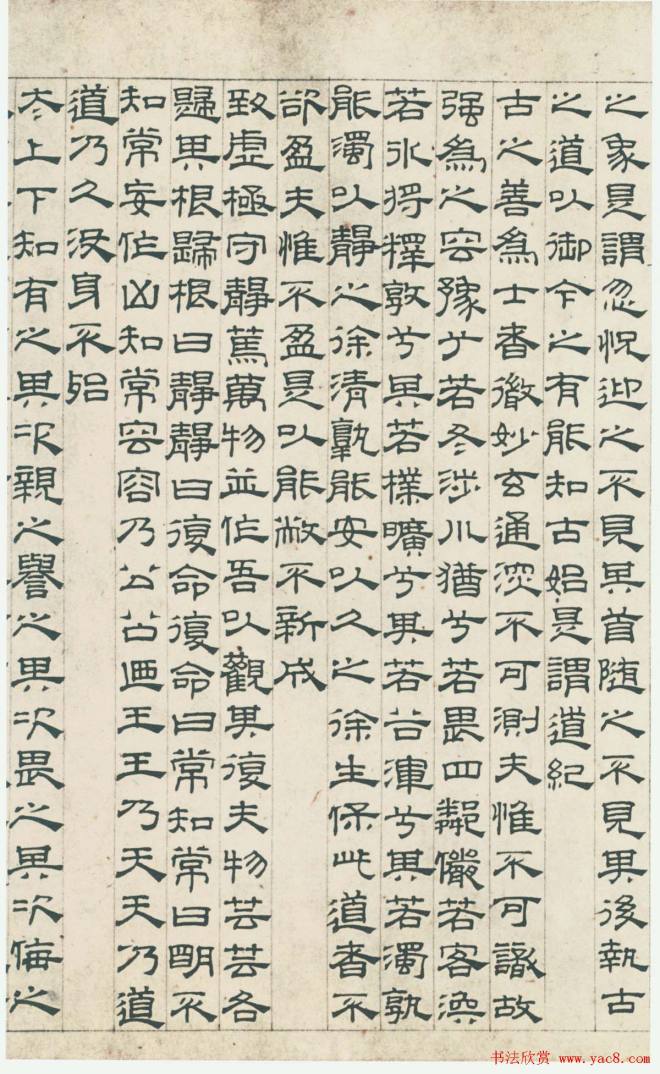 之象是謂忽怳迎之不見其首隨之不見其後執古
之道以御今之有能知古始是謂道紀
古之善為士者微妙玄通深不可測夫惟不可識故
强為之容豫兮若冬涉川猶兮若畏四鄰儼若客渙
若冰將釋敦兮其若樸曠兮其若谷渾兮其若濁孰
能濁以靜之徐清孰能安以久之徐生保此道者不
欲盈夫惟不盈是以能敝不新成
致虛極守靜篤萬物並作吾以觀其復夫物芸芸各
歸其根歸根曰靜靜曰復命復命曰常知常曰明不
知常妄作凶知常容容乃公公廼王王乃天天乃道
道乃久没身不殆
太上下知有之其次親之譽之其次畏之其次侮之
书法欣赏 www.yac8.com